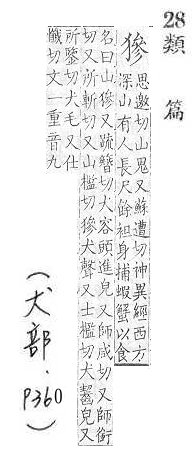 28 類篇
㺑
思邀切山鬼又蘇遭切神異經西方
深山有人長尺餘袒身捕蝦蟹以食
名曰山㺑又疏簪切犬容頭進皃又師咸切又師銜
切又所斬切又山檻切㺑犬聲又士檻切犬齧皃又
所鑒切犬毛又仕
懺切文一重音九
(犬部.P360)